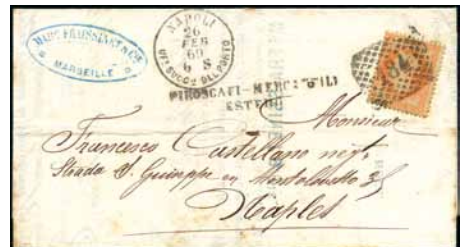 MARC FRAISSINET & CIE
MARSEILLE
NAPOLI
26
FEB
69
6 S
UFF. SUCC. DEL PORTO
PIROSCAFI-MERCANTILI
ESTERI
Monsieur
Francesco Castellano negt.
Strada S. Giuseppe
Naples